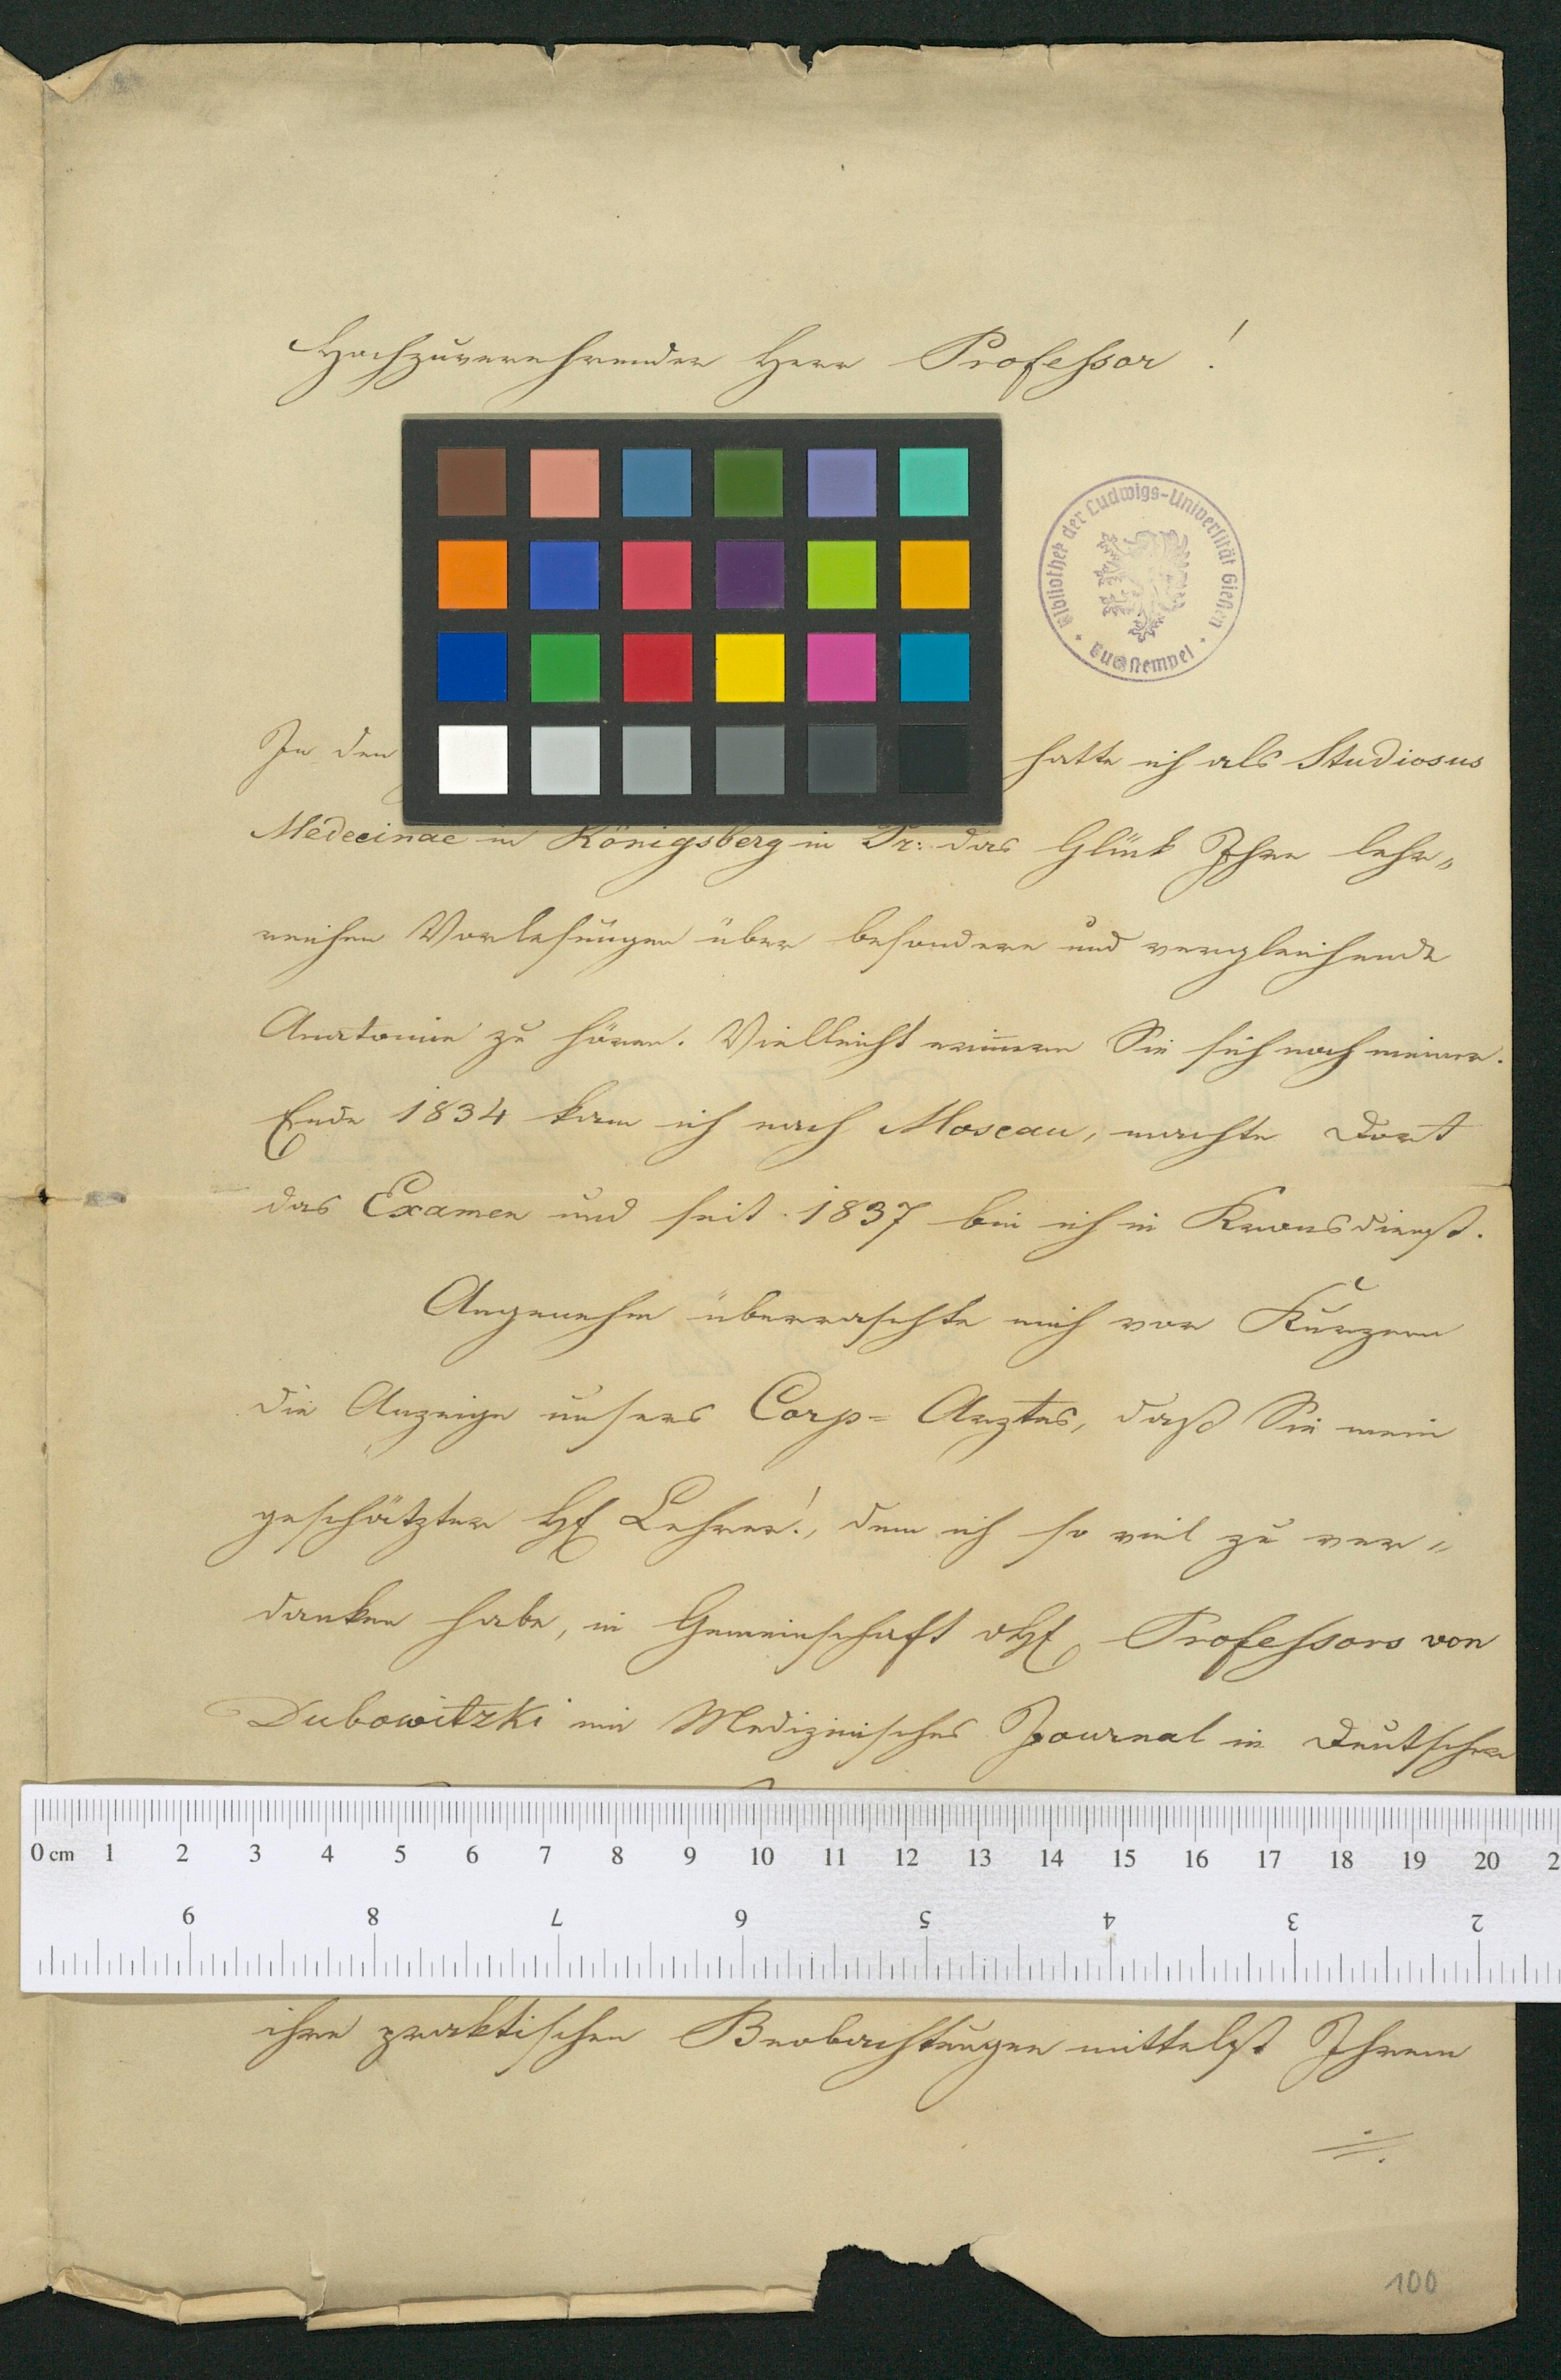 Hochzuverehrender Herr Professor!
Bibliothek der Ludwigs-Universität Gießen
Buchstempel
In den
hatte ich als Studiosus
Medecinae in Königsberg in Pr: das Glück Ihre lehr„
reichen Vorlesungen über besondere und vergleichende
Anatomie zu hören. Vielleicht erinnern Sie sich noch meiner.
Ende 1834 kam ich nach Moscau, machte dort
das Examen und seit 1837 bin ich in Kronsdienst.
Angenehm überraschte mich vor Kurzem
die Anzeige unsers Corp= Arztes, daß Sie mein
geschätzter H Lehrer!, dem ich so viel zu ver„
danken habe, in Gemeinschaft Professors von
Dubowitzki ein Medizinisches Journal in deutscher
0 cm 1 2 3 4 5 6 7 8 9 10 11 12 13 14 15 16 17 18 19 20 2
9 8 7 6 5 4 3 2
ihre praktischen Beobachtungen mittelst Ihrem
100